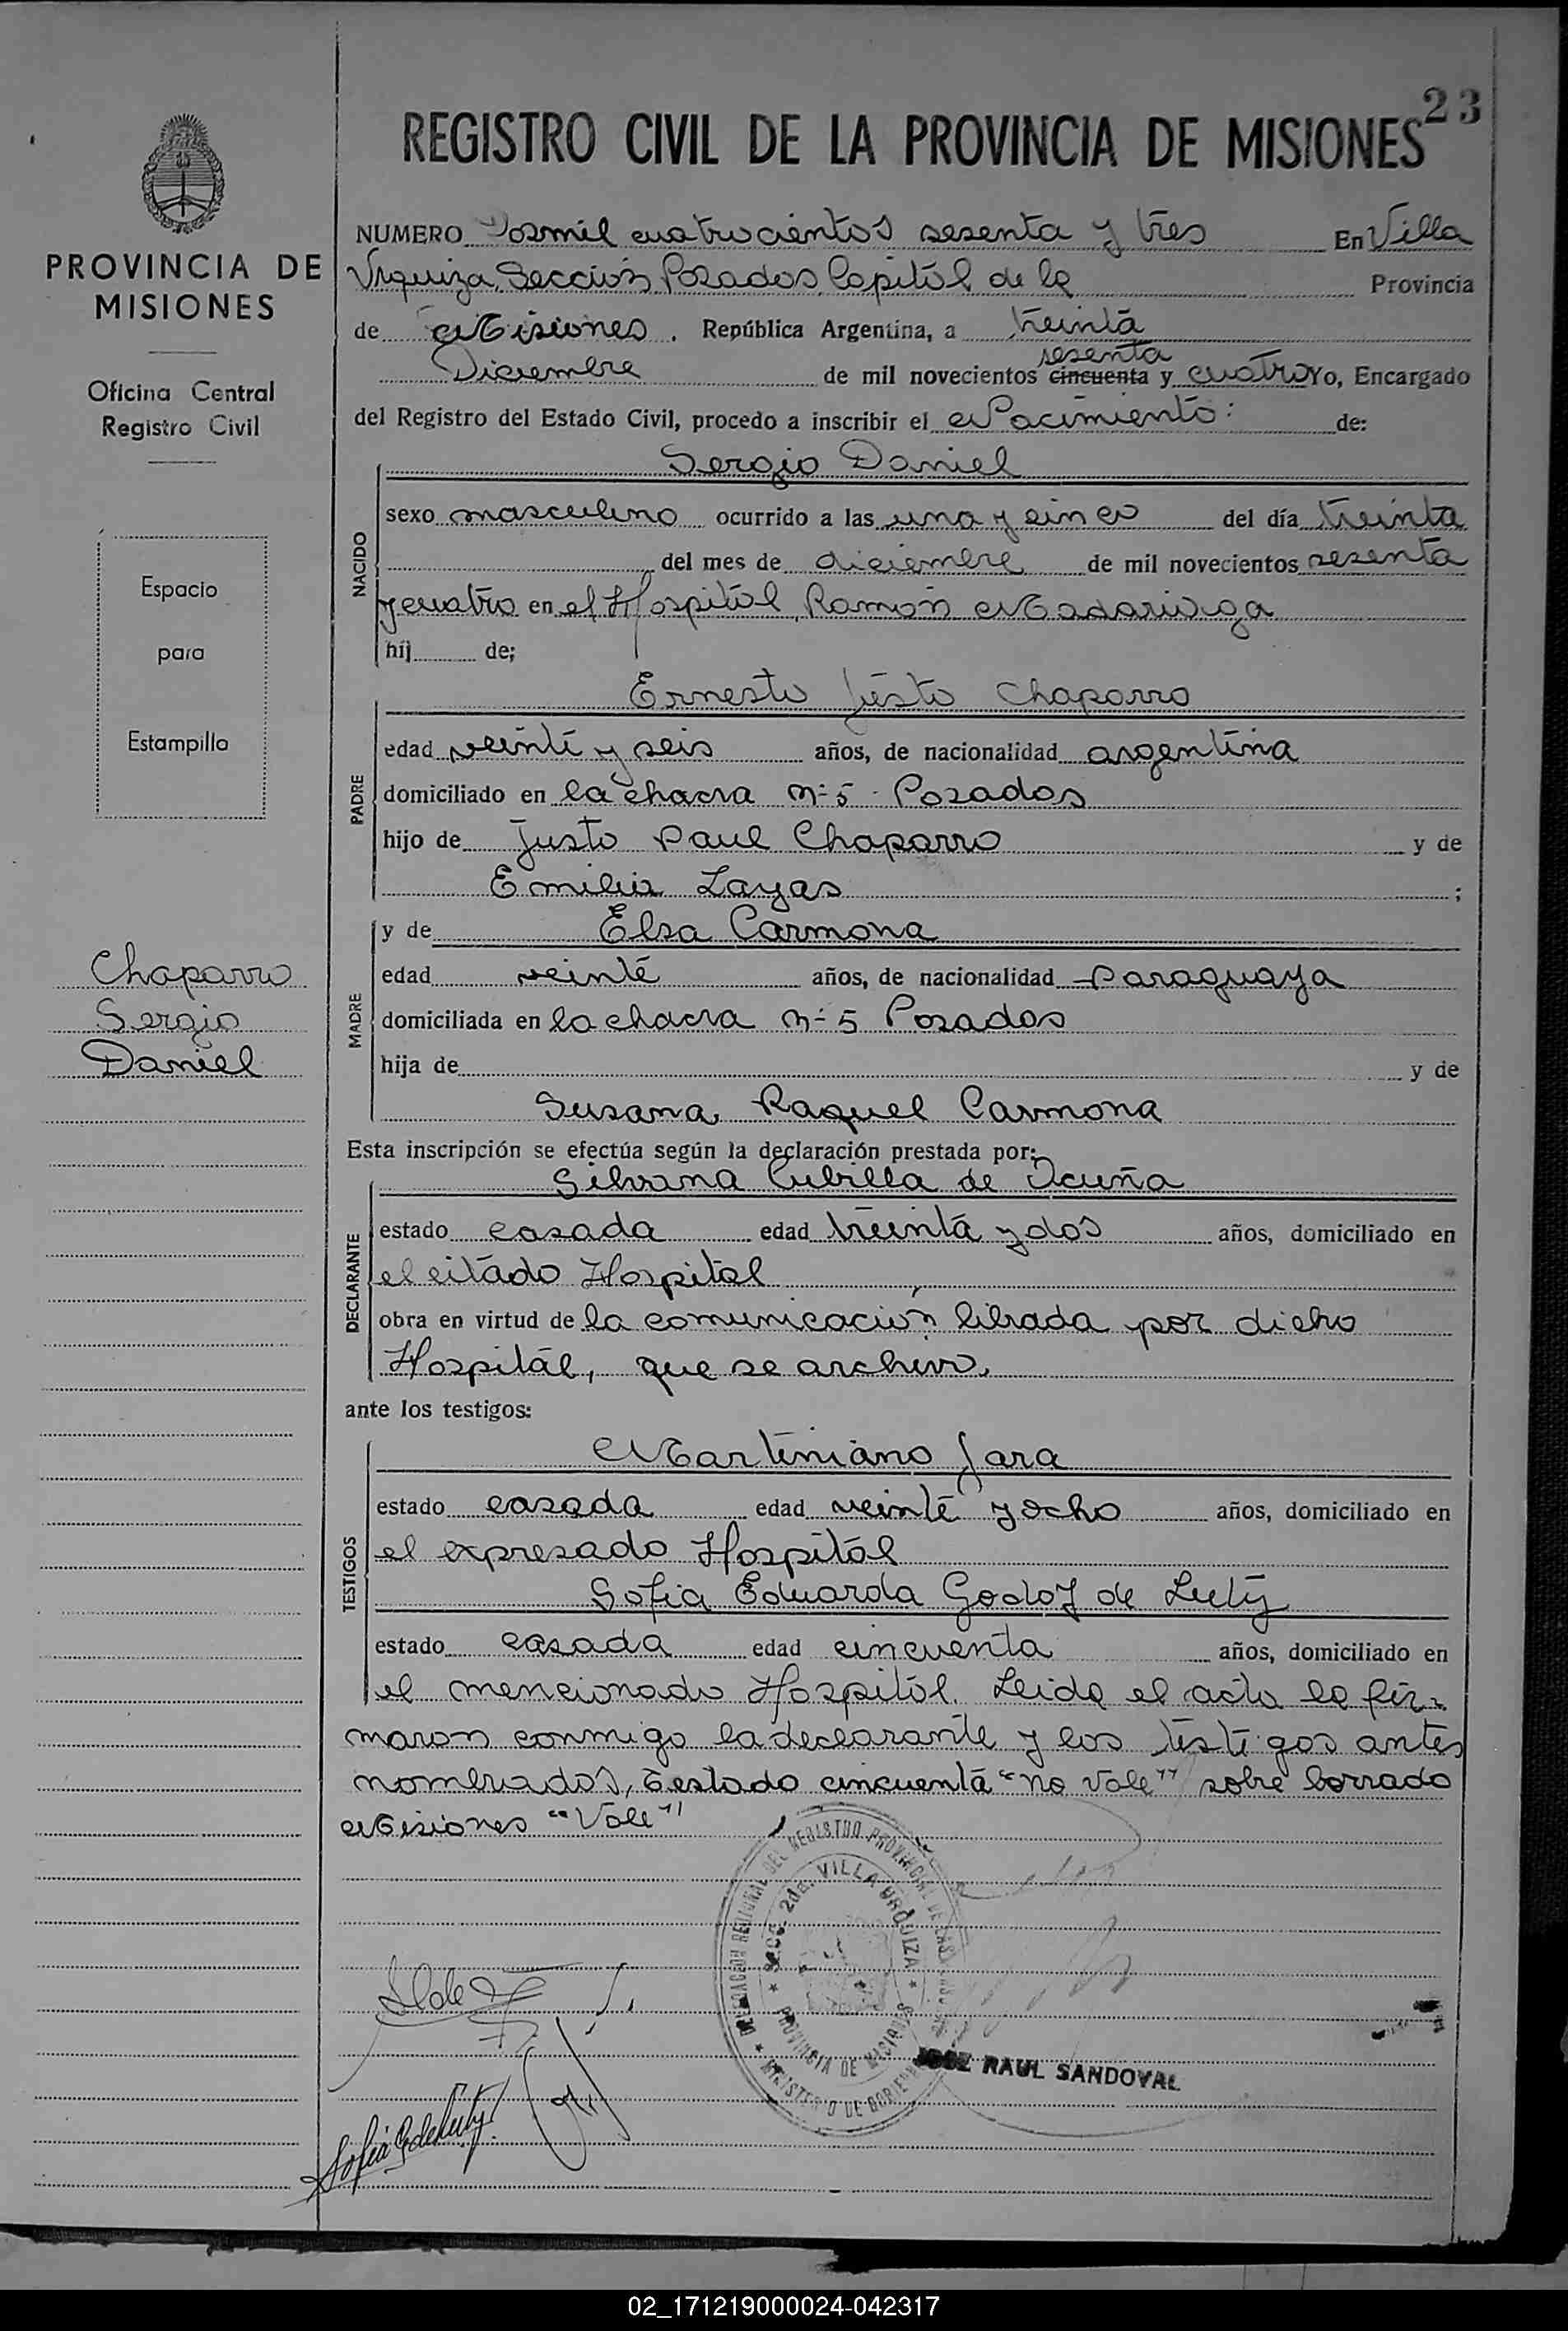 23
REGISTRO CIVIL DE LA PROVINCIA DE MISIONES
PROVINCIA DE
MISIONES
Oficina Central
Registro Civil
Espacio
para
Estampilla
Chaparro
Sergio
Daniel
NUMERO Dosmil cuatrocientos sesenta y tres En Villa
Urquiza, Sección Posadas, Capital de la Provincia
de Misiones. República Argentina, a treinta
sesenta
Diciembre de mil novecientos cincuenta y cuatro Yo, Encargado
del Registro del Estado Civil, procedo a inscribir el Nacimiento: de:
Sergio Daniel
NACIDO
sexo masculino ocurrido a las una y cinco del día treinta
del mes de diciembre de mil novecientos sesenta
y cuatro en el Hospital Ramón Madariaga
hij de;
Ernesto Justo Chaparro
PADRE
edad veinte y seis años, de nacionalidad argentina
domiciliado en la chacra Nº 5 - Posadas
hijo de Justo Paul Chaparro y de
Emilia Layas ;
MADRE
y de Elsa Carmona
edad veinte años, de nacionalidad Paraguaya
domiciliada en la chacra Nº 5 Posadas
hija de y de
Susana Raquel Carmona
Esta inscripción se efectúa según la declaración prestada por:
Silvana Cubilla de Acuña
DECLARANTE
estado casada edad treinta y dos años, domiciliado en
el citado Hospital
obra en virtud de la comunicación librada por dicho
Hospital, que se archiva.
ante los testigos:
Martiniano Jara
TESTIGOS
estado casada edad veinte y ocho años, domiciliado en
el expresado Hospital
Sofia Eduarda Godoy de Luty
estado casada edad cincuenta años, domiciliado en
el mencionado Hospital. Leida el acta la fir-
maron conmigo la declarante y los testigos antes
nombrados, Testado cincuenta "No Vale" sobre borrado
Misiones "Vale"
DELEGACION REGIONAL DEL REGISTRO PROVINCIAL DE LAS
SECC. 2da. VILLA URQUIZA
PROVINCIA DE MISIONES
MINISTERIO DE GOBIERNO
JOSE RAUL SANDOVAL
Sofia G de Luty
02_171219000024-042317